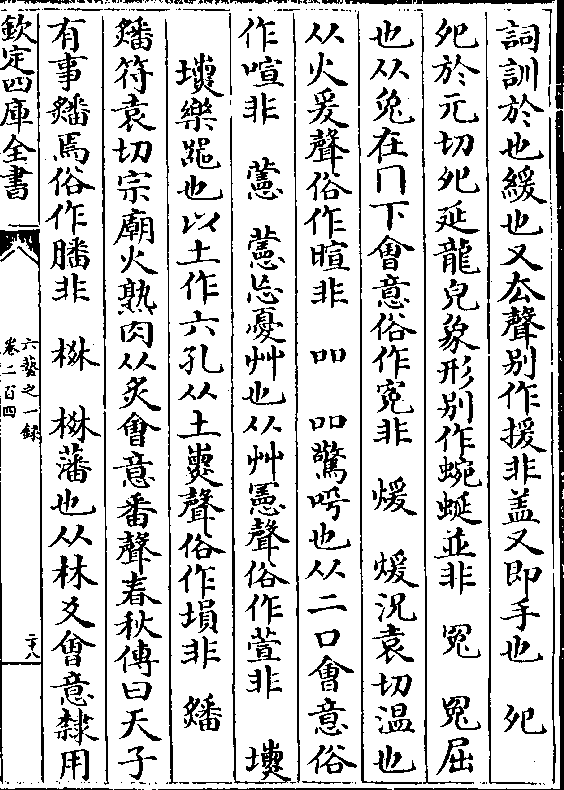 詞訓於也緩也又厷聲别作援非盖又即手也　夗
夗於元切夗延龍皃象形别作蜿蜒並非　冤　冤屈
也从兔在冂下會意俗作寃非　煖　煖況袁切温也
从火爰聲俗作暄非　吅　吅驚呼也从二口會意俗
作喧非　藼　藼忘憂艸也从艸憲聲俗作萱非　壎
壎樂器也以土作六孔从土熏聲俗作塤非　鐇
鐇符袁切宗廟火熟肉从炙會意番聲春秋傳曰天子
有事鐇焉俗作膰非　棥　棥藩也从林爻會意隸用
欽定四庫全書
六藝之一録
卷二百四
二十八